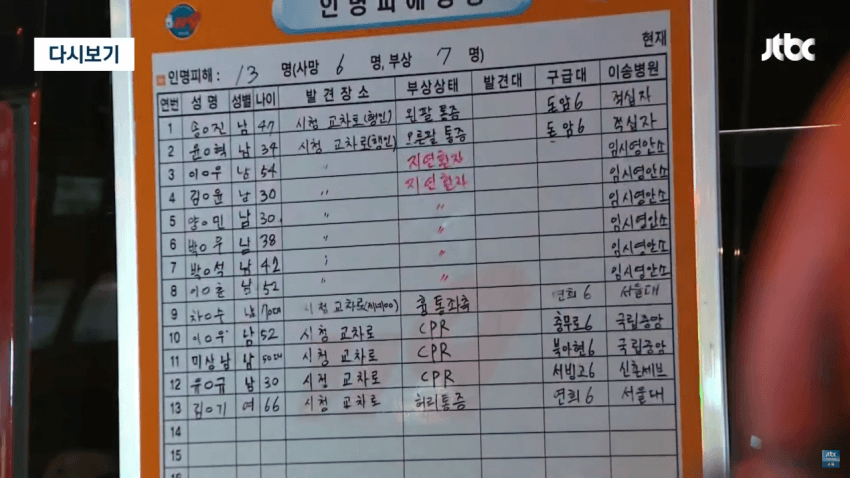 인명피해현황
다시보기
jtbc
현재
인명피해 : 13 명(사망 6 명, 부상 7 명)
연번 성 명 성별 나이 발 견 장 소 부상상태 발견대 구급대 이송병원
1 송○진 남 47 시청 교차로(행인) 왼팔 통증 도암6 적십자
2 윤○혁 남 34 시청 교차로(행인) 오른팔 통증 도암6 적십자
3 이○우 남 54 〃 지연환자 임시영안소
4 김○윤 남 30 〃 지연환자 임시영안소
5 양○민 남 30 〃 〃 임시영안소
6 박○우 남 38 〃 〃 임시영안소
7 박○석 남 42 〃 〃 임시영안소
8 이○훈 남 52 〃 〃 임시영안소
9 차○수 남 70대 시청 교차로 흉통 좌측 연희6 서울대
10 이○우 남 52 시청 교차로 CPR 충무로6 국립중앙
11 미상남 남 50대 시청 교차로 CPR 북아현6 국립중앙
12 유○규 남 30 시청 교차로 CPR 서빙고6 신촌세브
13 김○기 여 66 시청 교차로 허리통증 연희6 서울대
14
15
jtbc